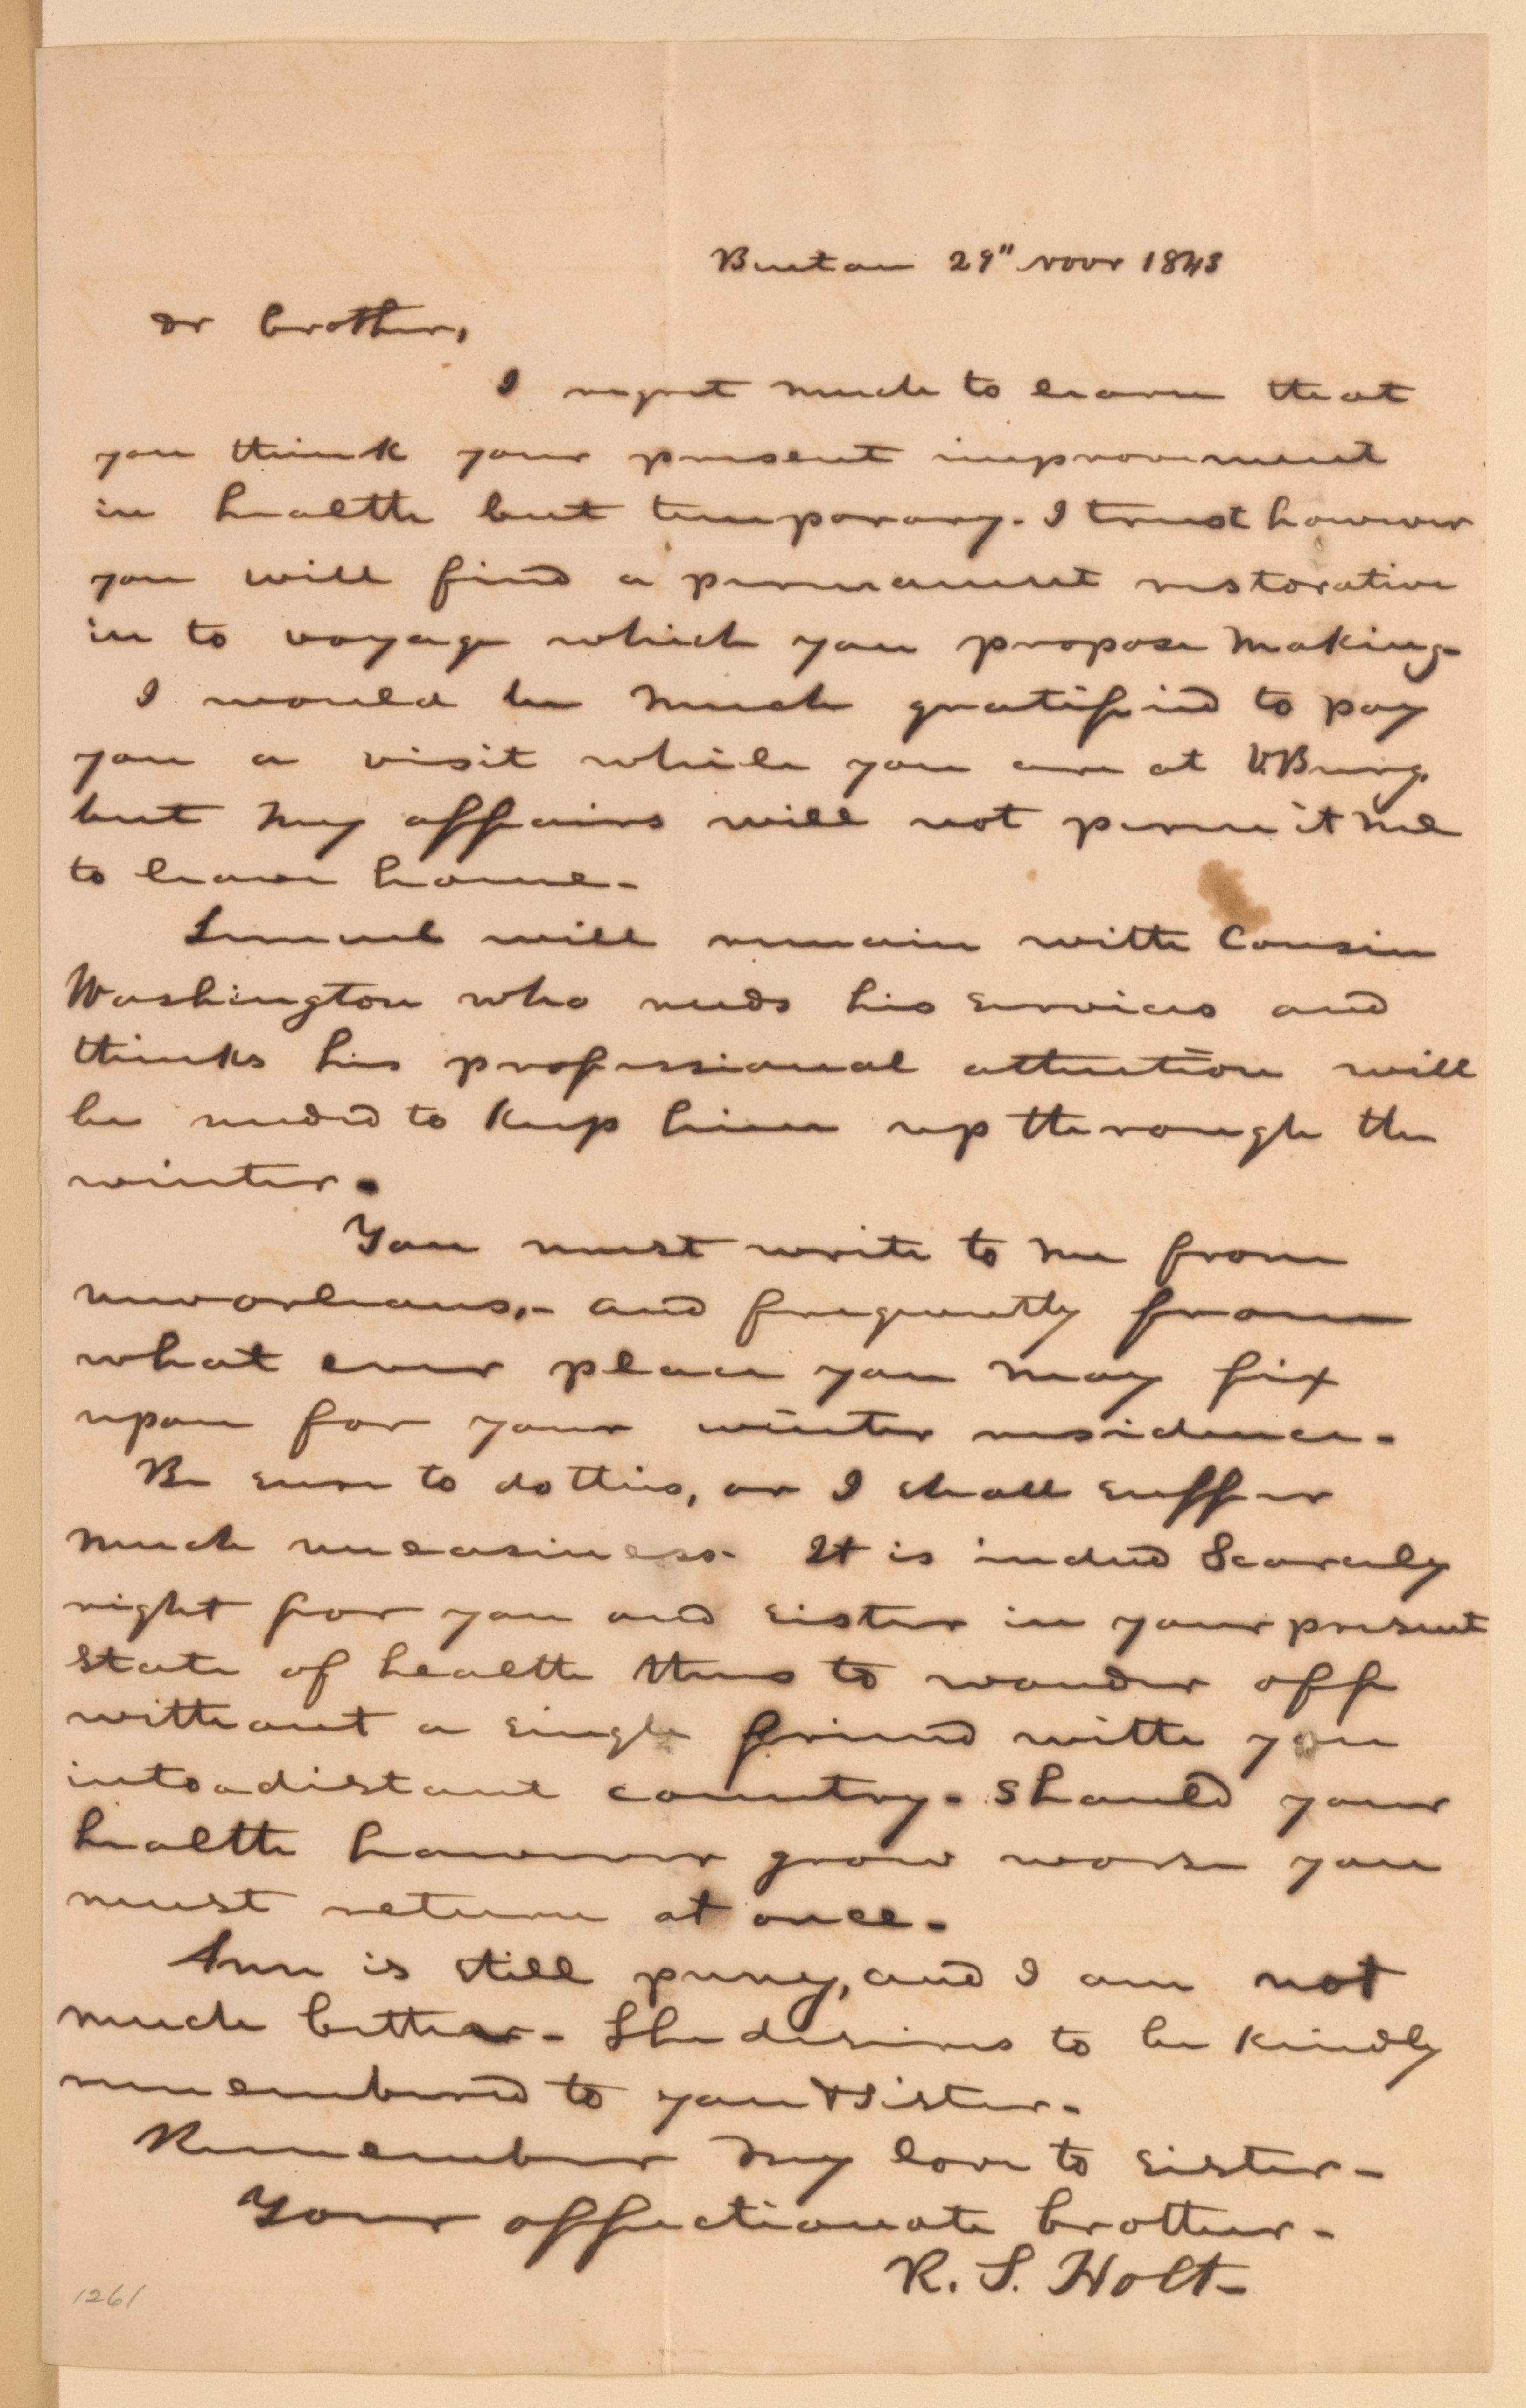 Benton 29" Novr 1843
Dr brother,
I regret much to learn that
you think your present improvement
in health but temporary. I trust however
you will find a permanent restorative
in to voyage which you propose making.
I would be much gratified to pay
you a visit while you are at V.Burg,
but my affairs will not permit me
to leave home.
Lemuel will remain with Cousin
Washington who needs his services and
thinks his professional attention will
be needed to keep him up through the
winter.
You must write to me from
neworleans,- and frequently from
what ever place you may fix
upon for your winter residence.
Be sure to do this, or I shall suffer
much uneasiness. It is indeed Scarcely
right for you and sister in your present
state of health thus to wander off
without a single friend with you
into a distant country. Should your
health however grow worse you
must return at once.
Ann is still puny, and I am not
much better. She desires to be kindly
remembered to you & Sister.
Remember my love to sister.
Your affectionate brother.
R. S. Holt
1261